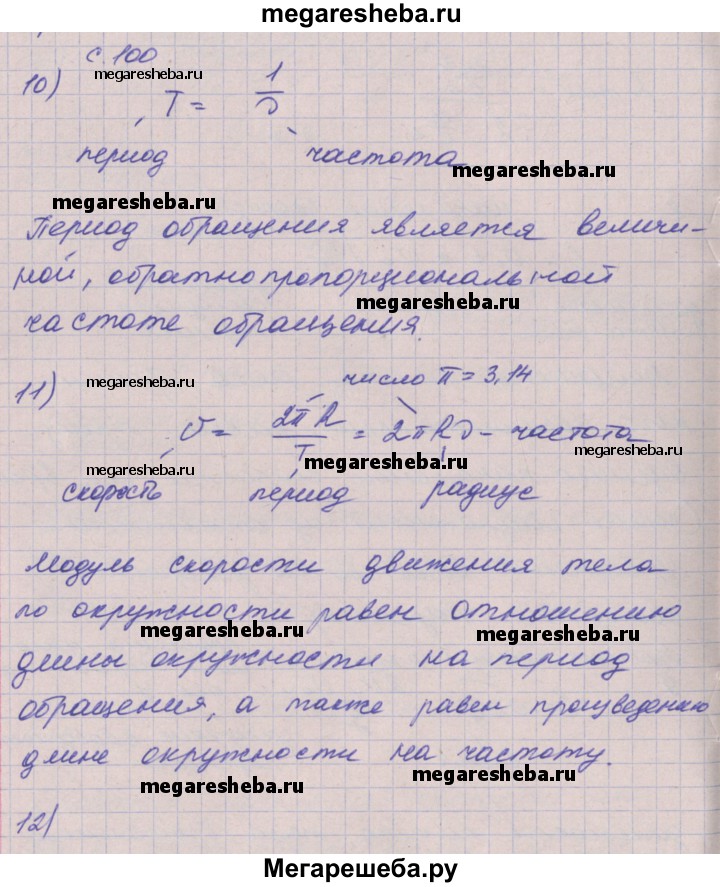 megaresheba.ru
с. 100
10) megaresheba.ru
T = 1/ν
период частота
megaresheba.ru
megaresheba.ru
Период обращения является величи-
ной, обратнопропорциональной
megaresheba.ru
частоте обращения.
11) megaresheba.ru число π = 3,14
υ = 2πR/T = 2πRν - частота
megaresheba.ru megaresheba.ru
скорость период радиус
Модуль скорости движения тела
по окружности равен отношению
megaresheba.ru megaresheba.ru
длины окружности на период
обращения, а также равен произведению
длине окружности на частоту.
megaresheba.ru megaresheba.ru
12)
Мегарешеба.ру